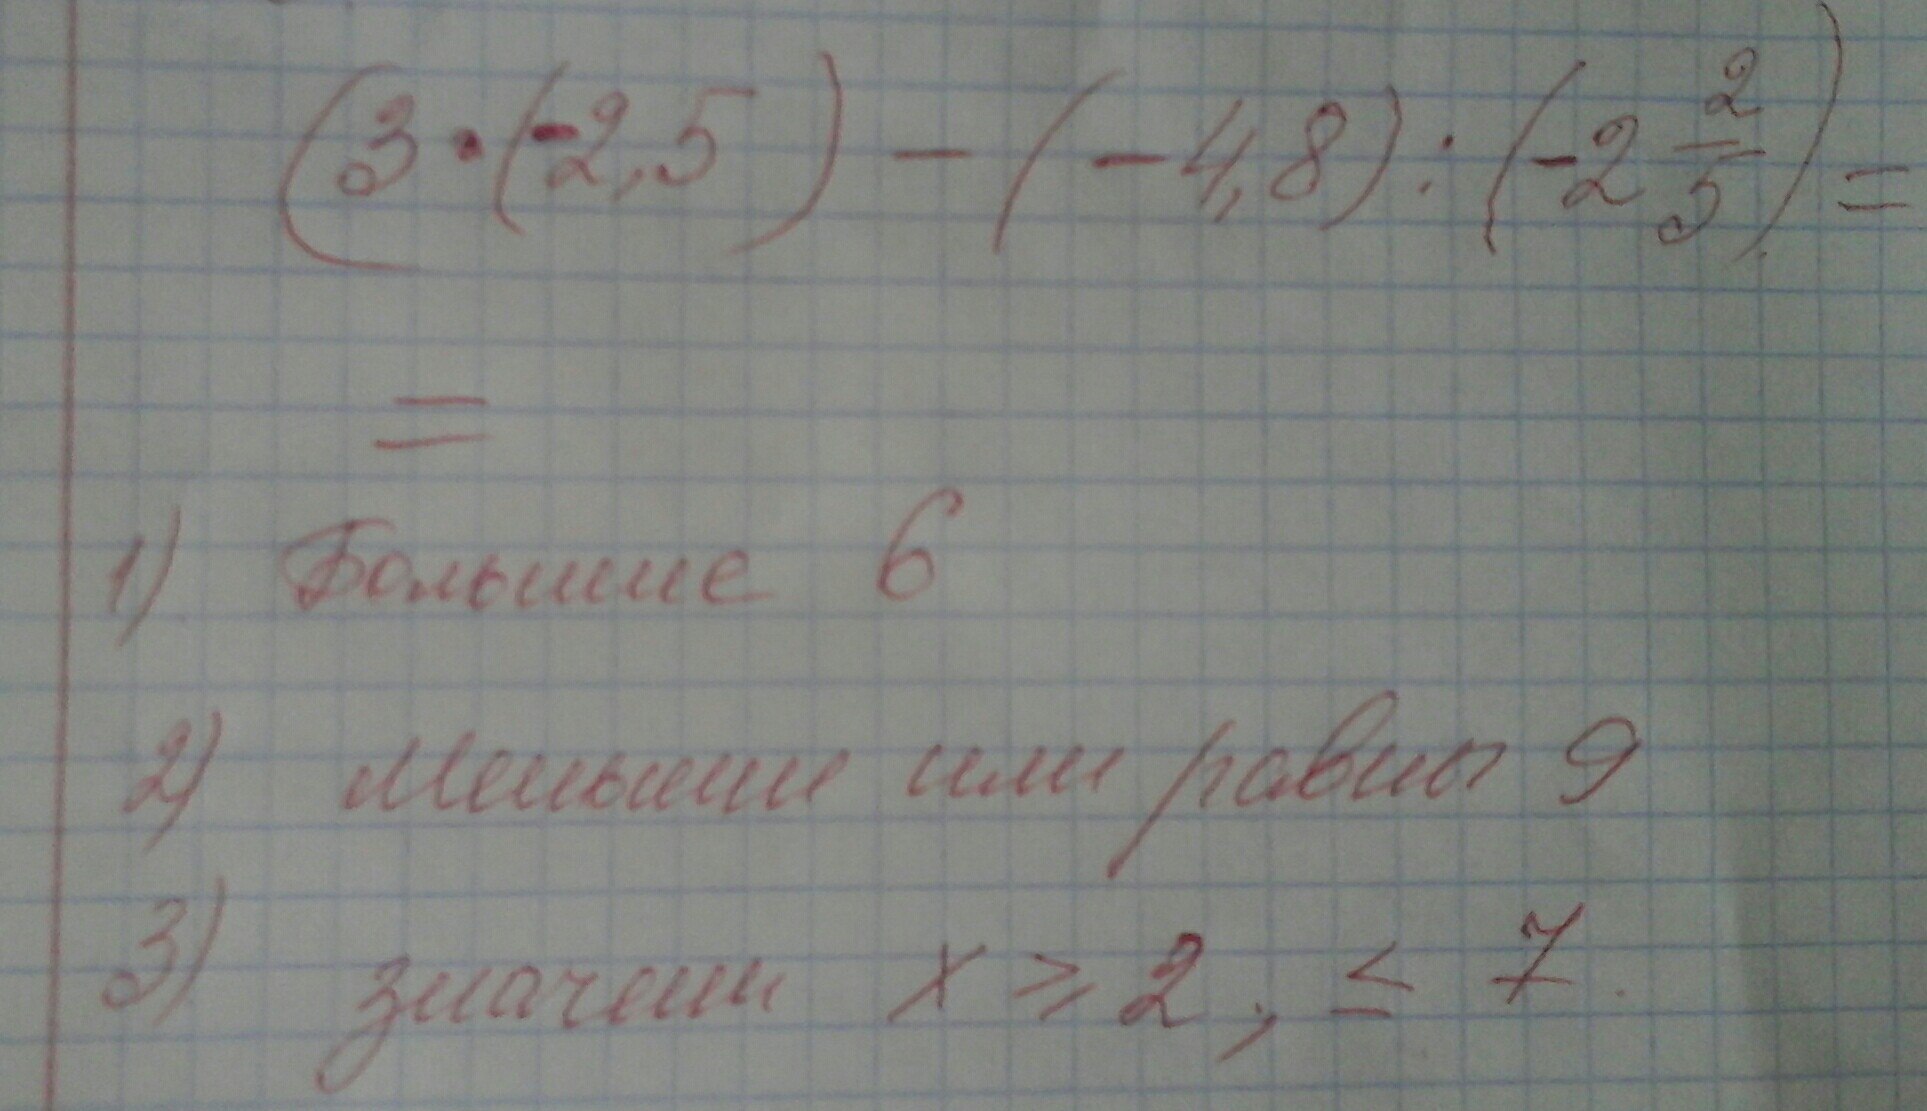 (3·(-2,5) - (-4,8) : (-2 2/5) =
=
1) Большие 6
2) Меньшие или равны 9
3) значения x ⩾ 2, ≤ 7.